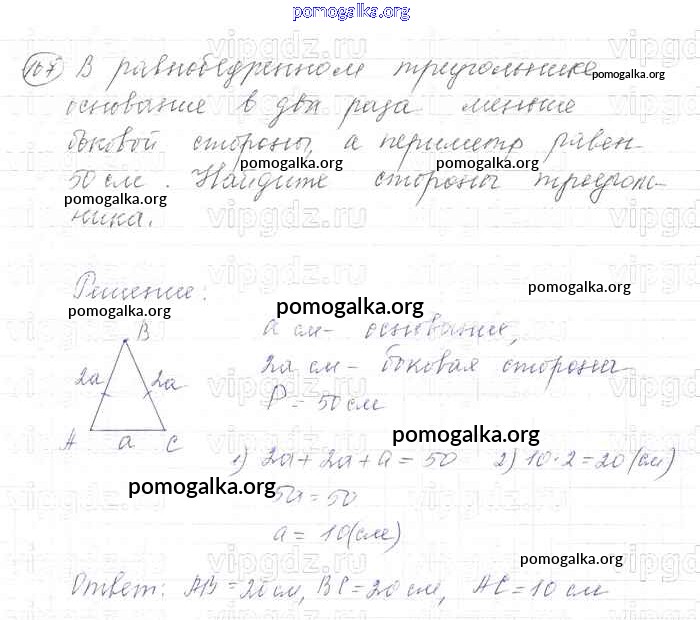 pomogalka.org
107 В равнобедренном треугольнике
pomogalka.org
основание в два раза меньше
боковой стороны, а периметр равен
pomogalka.org pomogalka.org
50 см. Найдите стороны треуголь-
pomogalka.org
ника.
Решение:
pomogalka.org
pomogalka.org
pomogalka.org
B
a см - основание,
2a 2a
2a см - боковая стороны
P = 50 см
A a C
pomogalka.org
1) 2a + 2a + a = 50 2) 10 · 2 = 20 (см)
pomogalka.org
5a = 50
a = 10 (см)
pomogalka.org
Ответ: AB = 20 см, BC = 20 см, AC = 10 см
vipgdz.ru